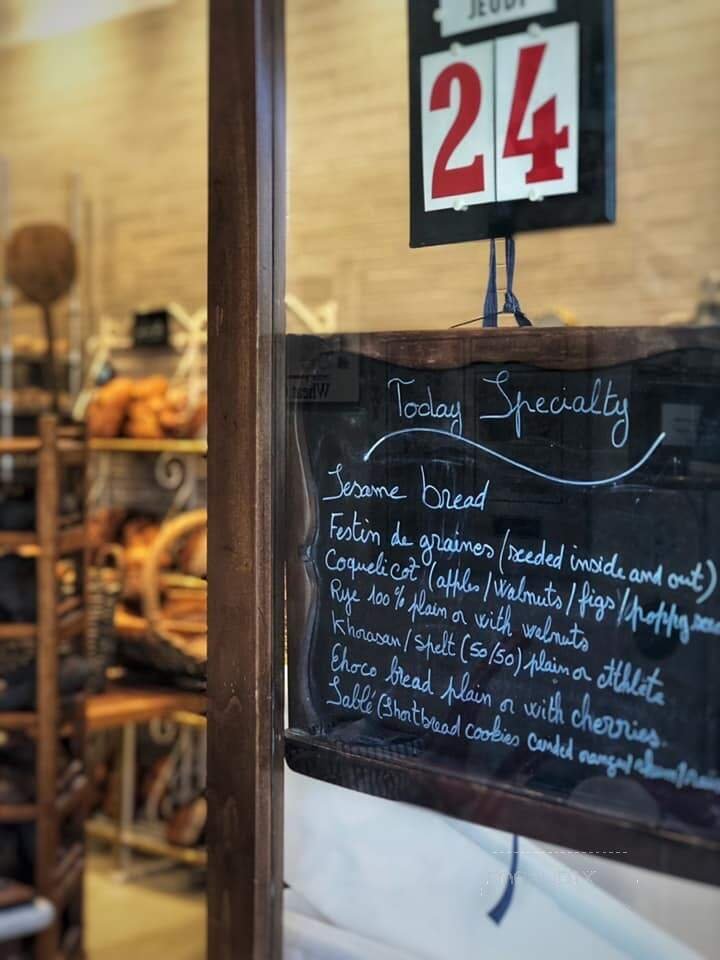 JEUDI
24
Today Specialty
Sesame bread
Festin de graines (seeded inside and out)
Coquelicot (apples/walnuts/figs/poppy
Rye 100% plain or with walnuts
Khorasan/spelt (50/50) plain or Athlète
Choco bread plain or with cherries.
Sablé (Shortbread cookies